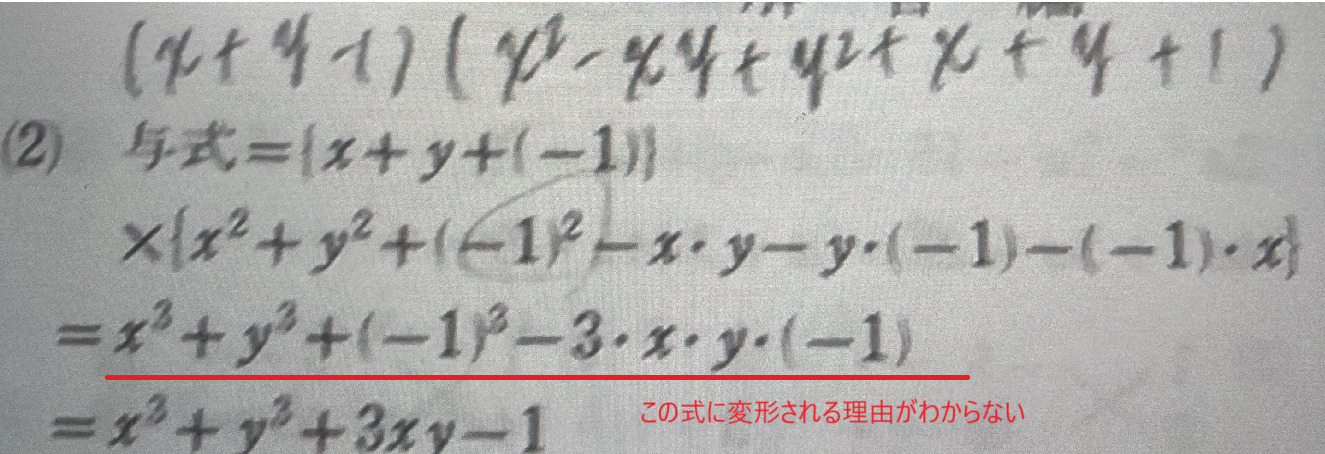 (x+y-1)(x²-xy+y²+x+y+1)
(2) 与式={x+y+(-1)}
×{x²+y²+(-1)²-x・y-y・(-1)-(-1)・x}
=x³+y³+(-1)³-3・x・y・(-1)
この式に変形される理由がわからない
=x³+y³+3xy-1